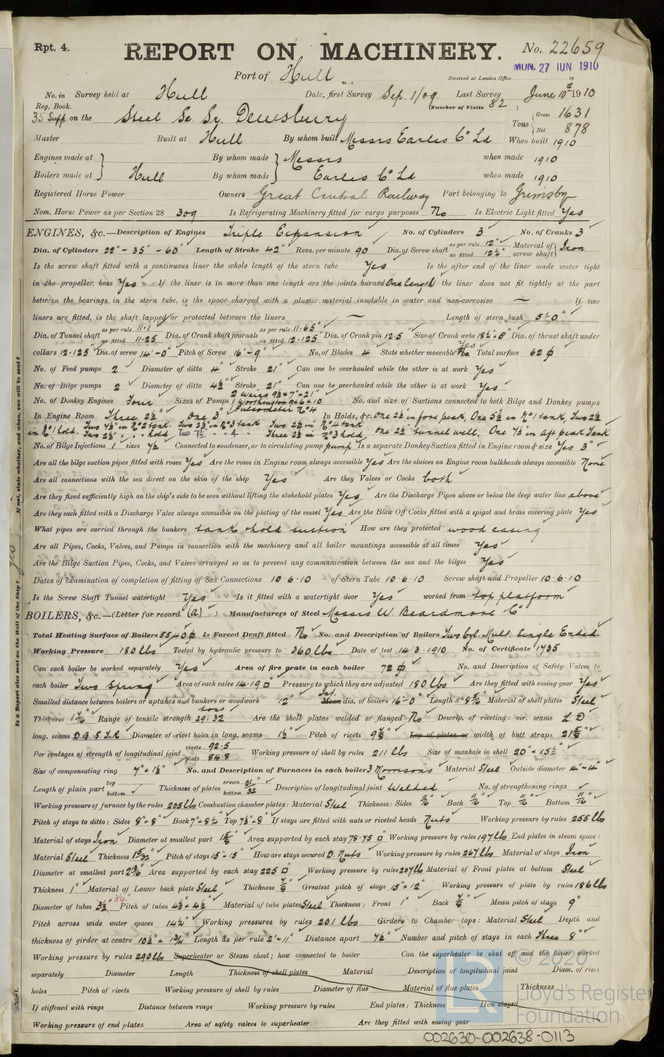 Rpt. 4. REPORT ON MACHINERY. No. 22659
Port of Hull Received at London Office MON. 27 JUN 1910
No. in Survey held at Hull Date, first Survey Sep. 1/09 Last Survey June 10th 1910
Reg. Book. (Number of Visits 82)
35 Supp on the Steel Sc Sr. Dewsbury Tons Gross 1631 Net 878
Master Built at Hull By whom built Messrs Earles Co Ld When built 1910
Engines made at Hull By whom made Messrs when made 1910
Boilers made at By whom made Earles Co Ld when made 1910
Registered Horse Power Owners Great Central Railway Port belonging to Grimsby
Nom. Horse Power as per Section 28 309 Is Refrigerating Machinery fitted for cargo purposes No Is Electric Light fitted Yes
ENGINES, &c.—Description of Engines Triple Expansion No. of Cylinders 3 No. of Cranks 3
Dia. of Cylinders 22" - 35" - 60" Length of Stroke 42" Revs. per minute 90 Dia. of Screw shaft as per rule 12" as fitted Material of screw shaft Iron
Is the screw shaft fitted with a continuous liner the whole length of the stern tube Yes Is the after end of the liner made water tight
in the propeller boss Yes If the liner is in more than one length are the joints burned One length If the liner does not fit tightly at the part
between the bearings in the stern tube, is the space charged with a plastic material insoluble in water and non-corrosive — If two
liners are fitted, is the shaft lapped or protected between the liners Length of stern bush 5'-0"
Dia. of Tunnel shaft as per rule 11.1 as fitted 11.25 Dia. of Crank shaft journals as per rule 11.65" as fitted 12.125 Dia. of Crank pin 12.5 Size of Crank webs Dia. of thrust shaft under
collars 12.125 Dia. of screw 14'-0" Pitch of Screw 16'-9" No. of Blades 4 State whether moveable Yes Total surface 62
No. of Feed pumps 2 Diameter of ditto 4 Stroke 21" Can one be overhauled while the other is at work Yes
No. of Bilge pumps 2 Diameter of ditto 4½ Stroke 21" Can one be overhauled while the other is at work Yes
No. of Donkey Engines Four Sizes of Pumps No. and size of Suctions connected to both Bilge and Donkey pumps
In Engine Room Three In Holds, &c.
No. of Bilge Injections 1 sizes 7½ Connected to condenser, or to circulating pump pump Is a separate Donkey Suction fitted in Engine room & size Yes 3"
Are all the bilge suction pipes fitted with roses Yes Are the roses in Engine room always accessible Yes Are the sluices on Engine room bulkheads always accessible None
Are all connections with the sea direct on the skin of the ship Yes Are they Valves or Cocks both
Are they fixed sufficiently high on the ship's side to be seen without lifting the stokehold plates Yes Are the Discharge Pipes above or below the deep water line above
Are they each fitted with a Discharge Valve always accessible on the plating of the vessel Yes Are the Blow Off Cocks fitted with a spigot and brass covering plate Yes
What pipes are carried through the bunkers tank & hold suction How are they protected wood casing
Are all Pipes, Cocks, Valves, and Pumps in connection with the machinery and all boiler mountings accessible at all times Yes
Are the Bilge Suction Pipes, Cocks, and Valves arranged so as to prevent any communication between the sea and the bilges Yes
Dates of examination of completion of fitting of Sea Connections 10.6.10 of Stern Tube 10.6.10 Screw shaft and Propeller 10.6.10
Is the Screw Shaft Tunnel watertight Yes Is it fitted with a watertight door Yes worked from top platform
BOILERS, &c.—(Letter for record (A)) Manufacturers of Steel Messrs W. Beardmore Co
Total Heating Surface of Boilers 5540 Is Forced Draft fitted No No. and Description of Boilers Two Cyl. Mult. Single Ended
Working Pressure 180 lbs Tested by hydraulic pressure to 360 lbs Date of test 14.3.1910 No. of Certificate 1735
Can each boiler be worked separately Yes Area of fire grate in each boiler 72 No. and Description of Safety Valves to
each boiler Two Spring Area of each valve 14.19 Pressure to which they are adjusted 180 lbs Are they fitted with easing gear Yes
Smallest distance between boilers or uptakes and bunkers or woodwork 12" Int. dia. of boilers 16'-0" Length Material of shell plates Steel
Thickness Range of tensile strength 29.32 Are the shell plates welded or flanged No Descrip. of riveting: cir. seams L.D.
long. seams Diameter of rivet holes in long. seams Pitch of rivets Lap of plates or width of butt straps
Per centages of strength of longitudinal joint rivets 92.5 plate 84.8 Working pressure of shell by rules 211 lbs Size of manhole in shell
Size of compensating ring No. and Description of Furnaces in each boiler 3 Morison's Material Steel Outside diameter 4'-4"
Length of plain part top bottom Thickness of plates crown bottom Description of longitudinal joint Welded No. of strengthening rings
Working pressure of furnace by the rules 205 lbs Combustion chamber plates: Material Steel Thickness: Sides Back Top Bottom
Pitch of stays to ditto: Sides Back Top If stays are fitted with nuts or riveted heads Nuts Working pressure by rules 255 lbs
Material of stays Iron Diameter at smallest part Area supported by each stay Working pressure by rules 197 lbs End plates in steam space:
Material Steel Thickness Pitch of stays 15"×15" How are stays secured D. Nuts Working pressure by rules 267 lbs Material of stays Iron
Diameter at smallest part Area supported by each stay 225 Working pressure by rules Material of Front plates at bottom Steel
Thickness 1" Material of Lower back plate Steel Thickness Greatest pitch of stays Working pressure of plate by rules 186 lbs
Diameter of tubes Pitch of tubes Material of tube plates Steel Thickness: Front 1" Back Mean pitch of stays 9"
Pitch across wide water spaces Working pressures by rules 201 lbs Girders to Chamber tops: Material Steel Depth and
thickness of girder at centre Length as per rule 2'-11" Distance apart Number and pitch of stays in each Three 8"
Working pressure by rules 290 lbs Superheater or Steam chest; how connected to boiler Can the superheater be shut off and the boiler worked
separately Diameter Length Thickness of shell plates Material Description of longitudinal joint Diam. of rivet
holes Pitch of rivets Working pressure of shell by rules Diameter of flue Material of flue plates Thickness
If stiffened with rings Distance between rings Working pressure by rules End plates: Thickness How stayed
Working pressure of end plates Area of safety valves to superheater Are they fitted with easing gear
© 2020
Lloyd's Register
Foundation
002630-002638-0113